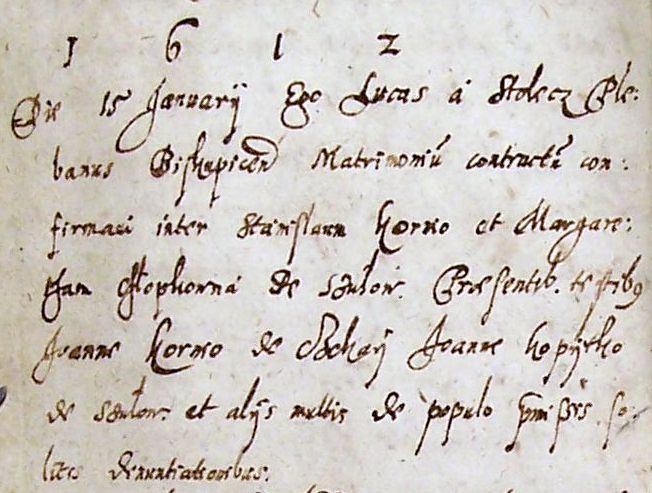 1612
Die 15 Januarij Ego Lucas a Stolecz Ple:
banus Biskupicen Matrimoniũ contractũ con:
firmavi inter Stanislaum Korwo et Margare:
tham de Præsentib. testibus
Joanne Korwo de Joanne Kopytko
de et alijs multis de populo pmissis so
litis denuntiationibus.